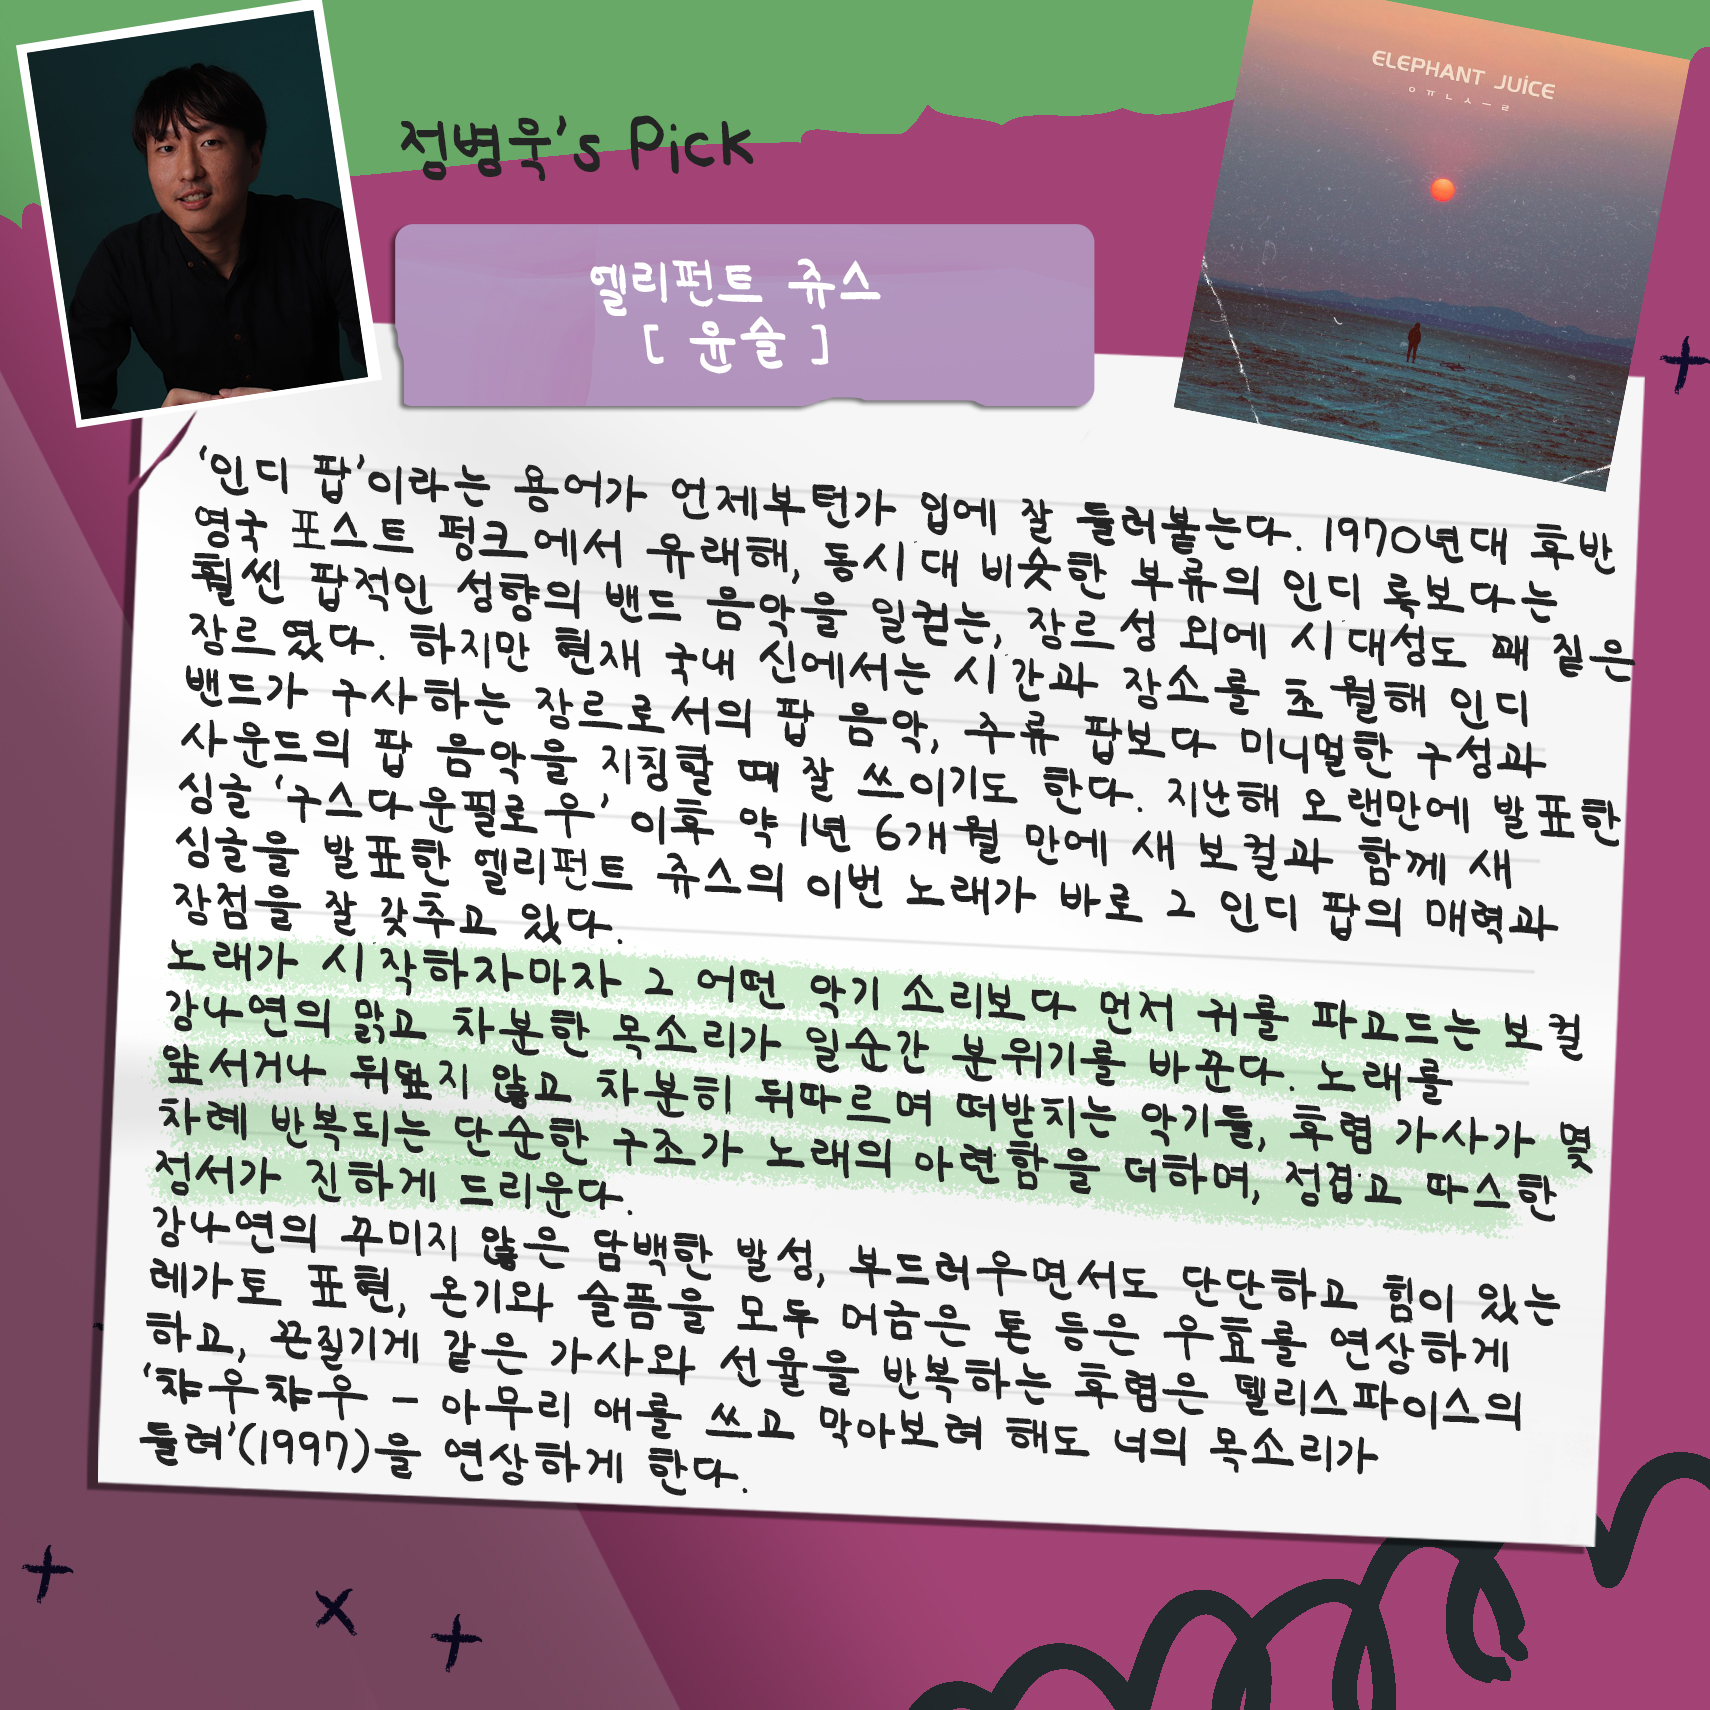 정병욱's Pick
ELEPHANT JUICE
ㅇㅠㄴㅅㅡㄹ
엘리펀트 쥬스
[ 윤슬 ]
'인디 팝'이라는 용어가 언제부턴가 입에 잘 들러붙는다. 1970년대 후반
영국 포스트 펑크에서 유래해, 동시대 비슷한 부류의 인디 록보다는
훨씬 팝적인 성향의 밴드 음악을 일컫는, 장르성 외에 시대성도 꽤 짙은
장르였다. 하지만 현재 국내 신에서는 시간과 장소를 초월해 인디
밴드가 구사하는 장르로서의 팝 음악, 주류 팝보다 미니멀한 구성과
사운드의 팝 음악을 지칭할 때 잘 쓰이기도 한다. 지난해 오랜만에 발표한
싱글 '구스다운필로우' 이후 약 1년 6개월 만에 새 보컬과 함께 새
싱글을 발표한 엘리펀트 쥬스의 이번 노래가 바로 그 인디 팝의 매력과
장점을 잘 갖추고 있다.
노래가 시작하자마자 그 어떤 악기 소리보다 먼저 귀를 파고드는 보컬
강나연의 맑고 차분한 목소리가 일순간 분위기를 바꾼다. 노래를
앞서거나 뒤덮지 않고 차분히 뒤따르며 떠받치는 악기들, 후렴 가사가 몇
차례 반복되는 단순한 구조가 노래의 아련함을 더하며, 정겹고 따스한
정서가 진하게 드리운다.
강나연의 꾸미지 않은 담백한 발성, 부드러우면서도 단단하고 힘이 있는
레가토 표현, 온기와 슬픔을 모두 머금은 톤 등은 우효를 연상하게
하고, 끈질기게 같은 가사와 선율을 반복하는 후렴은 델리스파이스의
'챠우챠우 - 아무리 애를 쓰고 막아보려 해도 너의 목소리가
들려'(1997)을 연상하게 한다.